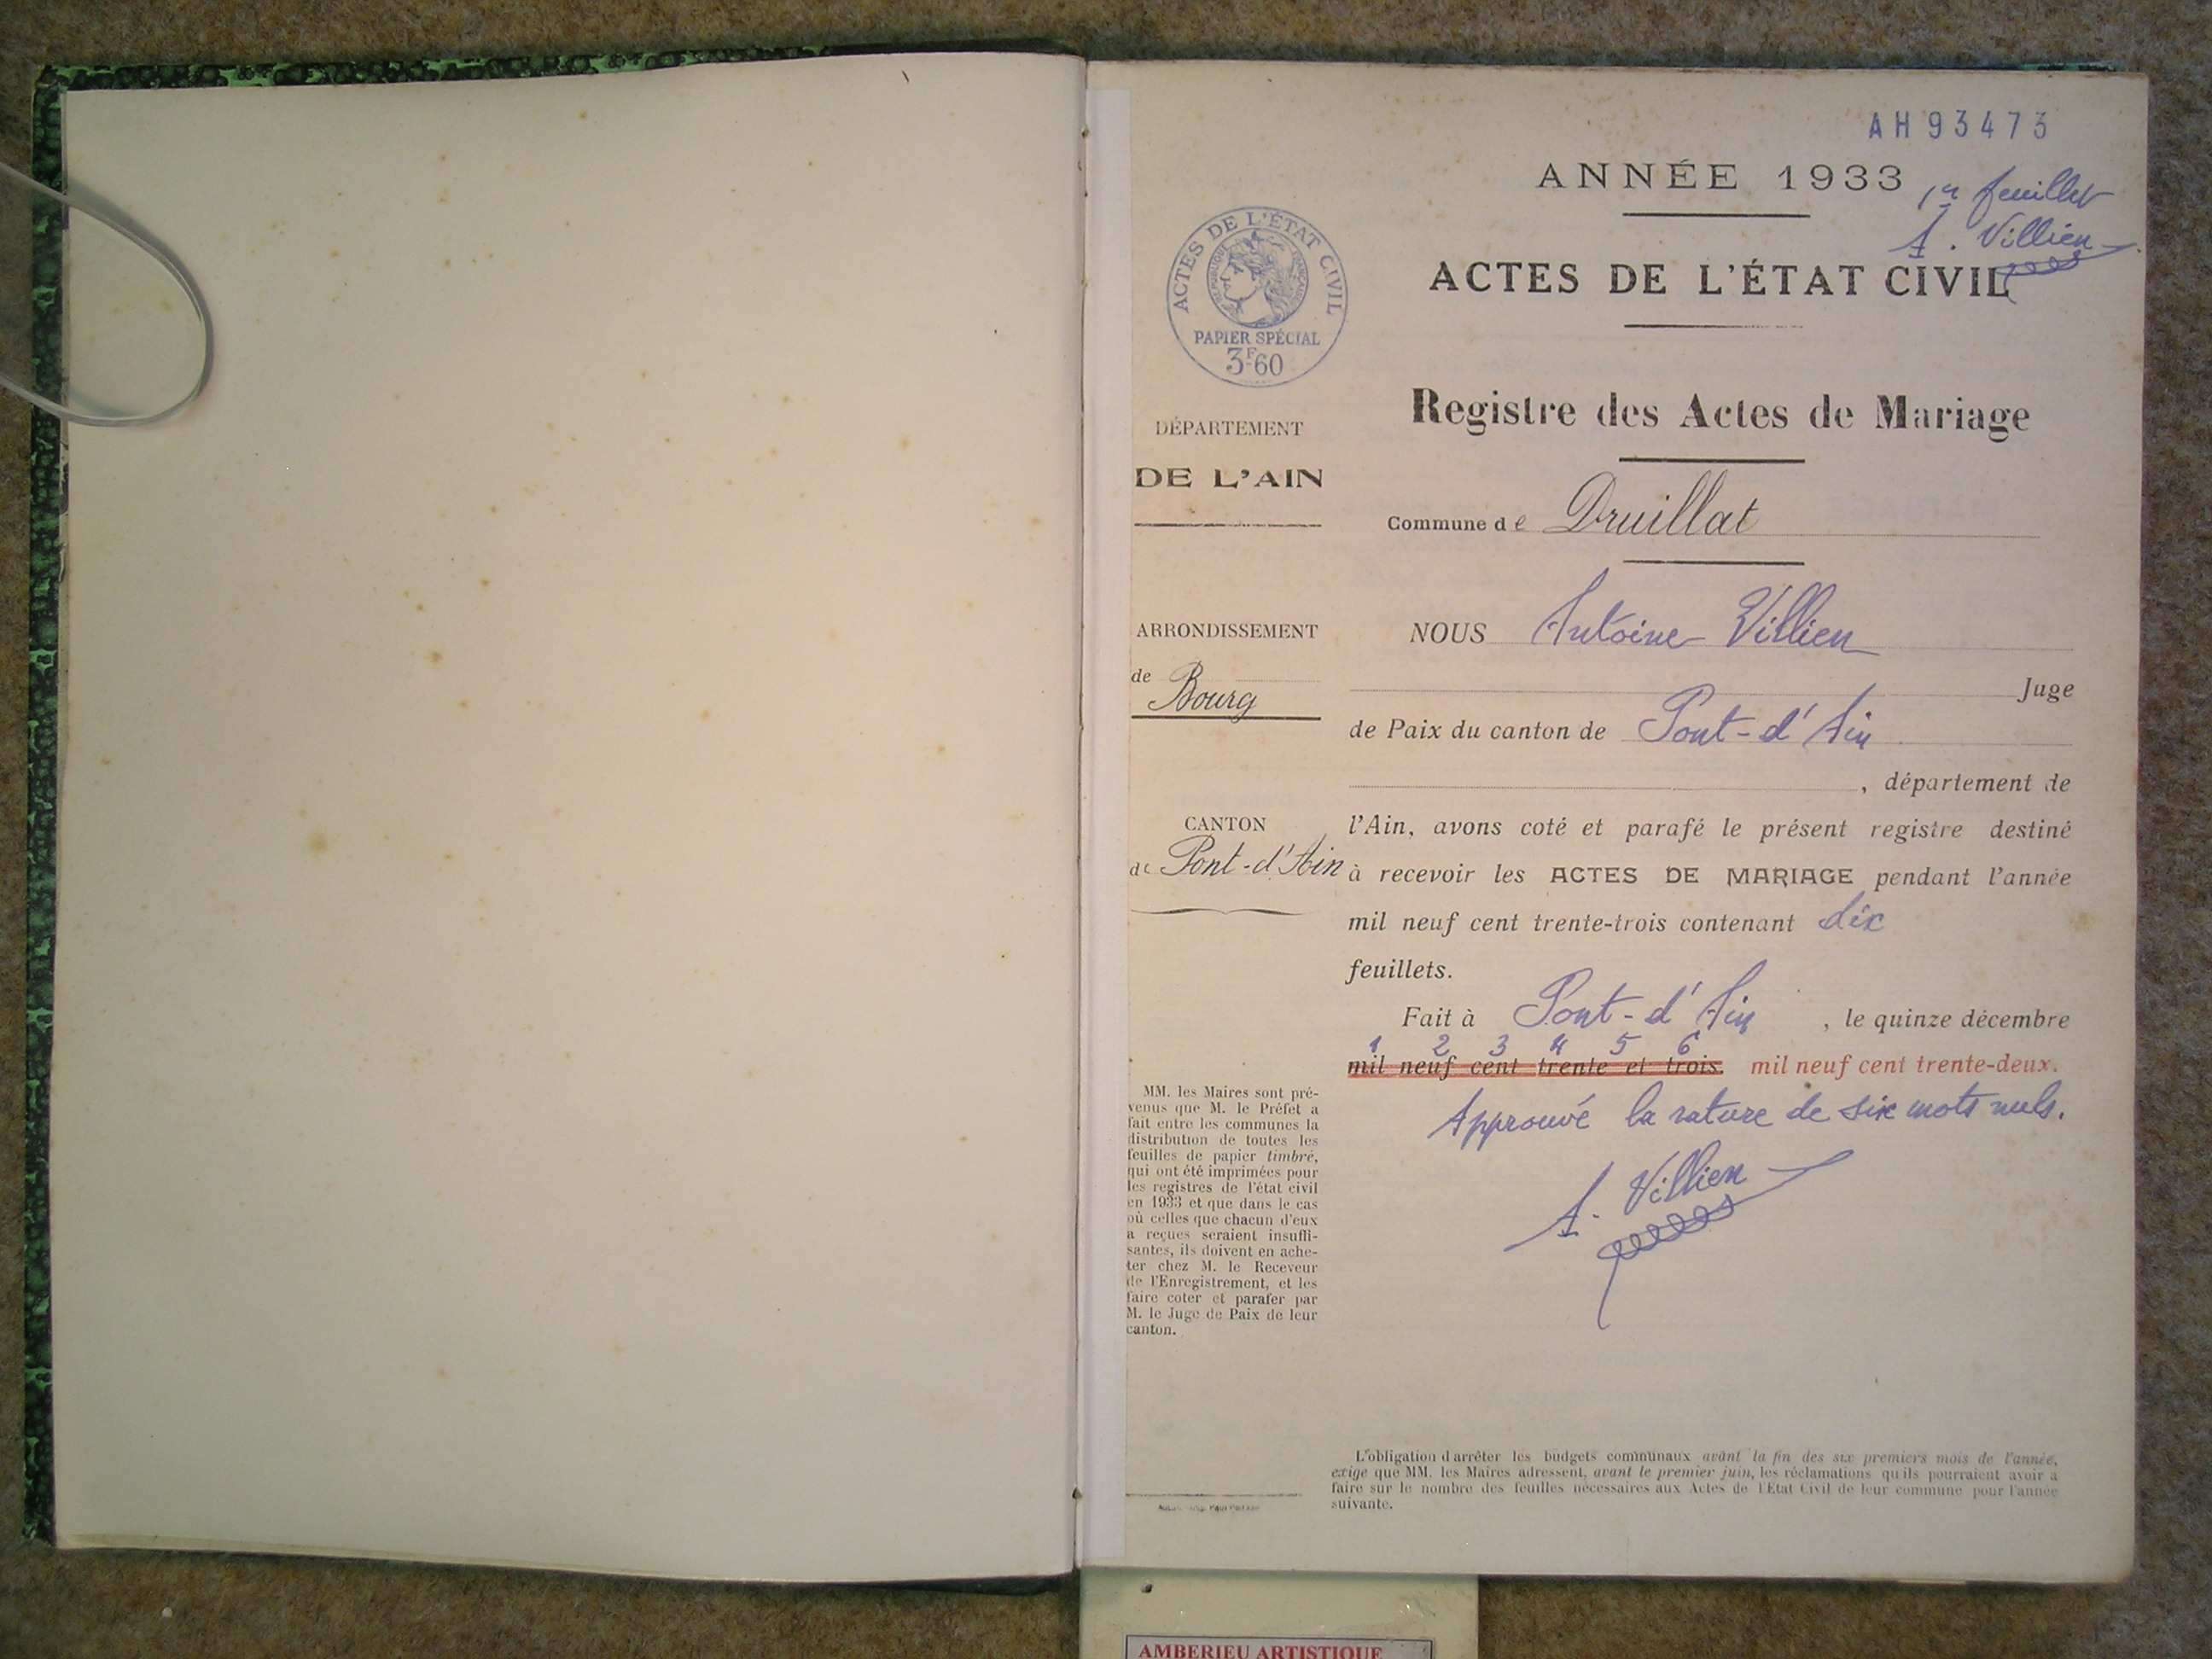 AH93473
ANNÉE 1933
1er feuillet
A. Villien
ACTES DE L'ÉTAT CIVIL
ACTES DE L'ÉTAT CIVIL
RÉPUBLIQUE FRANÇAISE
PAPIER SPÉCIAL
3F60
Registre des Actes de Mariage
DÉPARTEMENT
DE L'AIN
Commune de Druillat
ARRONDISSEMENT
de Bourg
CANTON
de Pont-d'Ain
NOUS Antoine Villien
Juge
de Paix du canton de Pont-d'Ain
, département de
l'Ain, avons coté et parafé le présent registre destiné
à recevoir les ACTES DE MARIAGE pendant l'année
mil neuf cent trente-trois contenant dix
feuillets.
Fait à Pont-d'Ain, le quinze décembre
1 2 3 4 5 6
mil neuf cent trente et trois. mil neuf cent trente-deux.
Approuvé la rature de six mots nuls.
A. Villien
MM. les Maires sont pré-
venus que M. le Préfet a
fait entre les communes la
distribution de toutes les
feuilles de papier timbré,
qui ont été imprimées pour
les registres de l'état civil
en 1933 et que dans le cas
où celles que chacun d'eux
a reçues seraient insuffi-
santes, ils doivent en ache-
ter chez M. le Receveur
de l'Enregistrement, et les
faire coter et parafer par
M. le Juge de Paix de leur
canton.
L'obligation d'arrêter les budgets communaux avant la fin des six premiers mois de l'année,
exige que MM. les Maires adressent, avant le premier juin, les réclamations qu'ils pourraient avoir à
faire sur le nombre des feuilles nécessaires aux Actes de l'Etat Civil de leur commune pour l'année
suivante.
AMBERIEU ARTISTIQUE